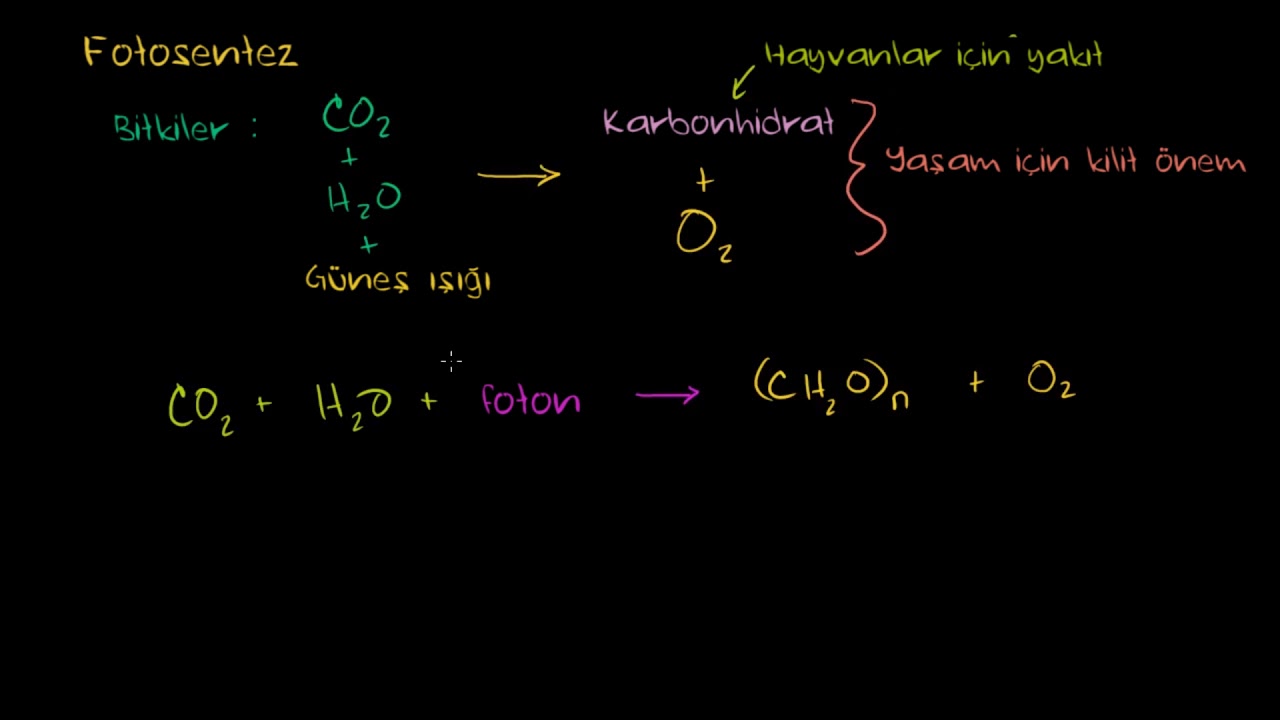 Fotosentez
Hayvanlar için yakıt
Bitkiler : CO₂ + H₂O + Güneş ışığı → Karbonhidrat + O₂
Yaşam için kilit önem
CO₂ + H₂O + foton → (CH₂O)n + O₂